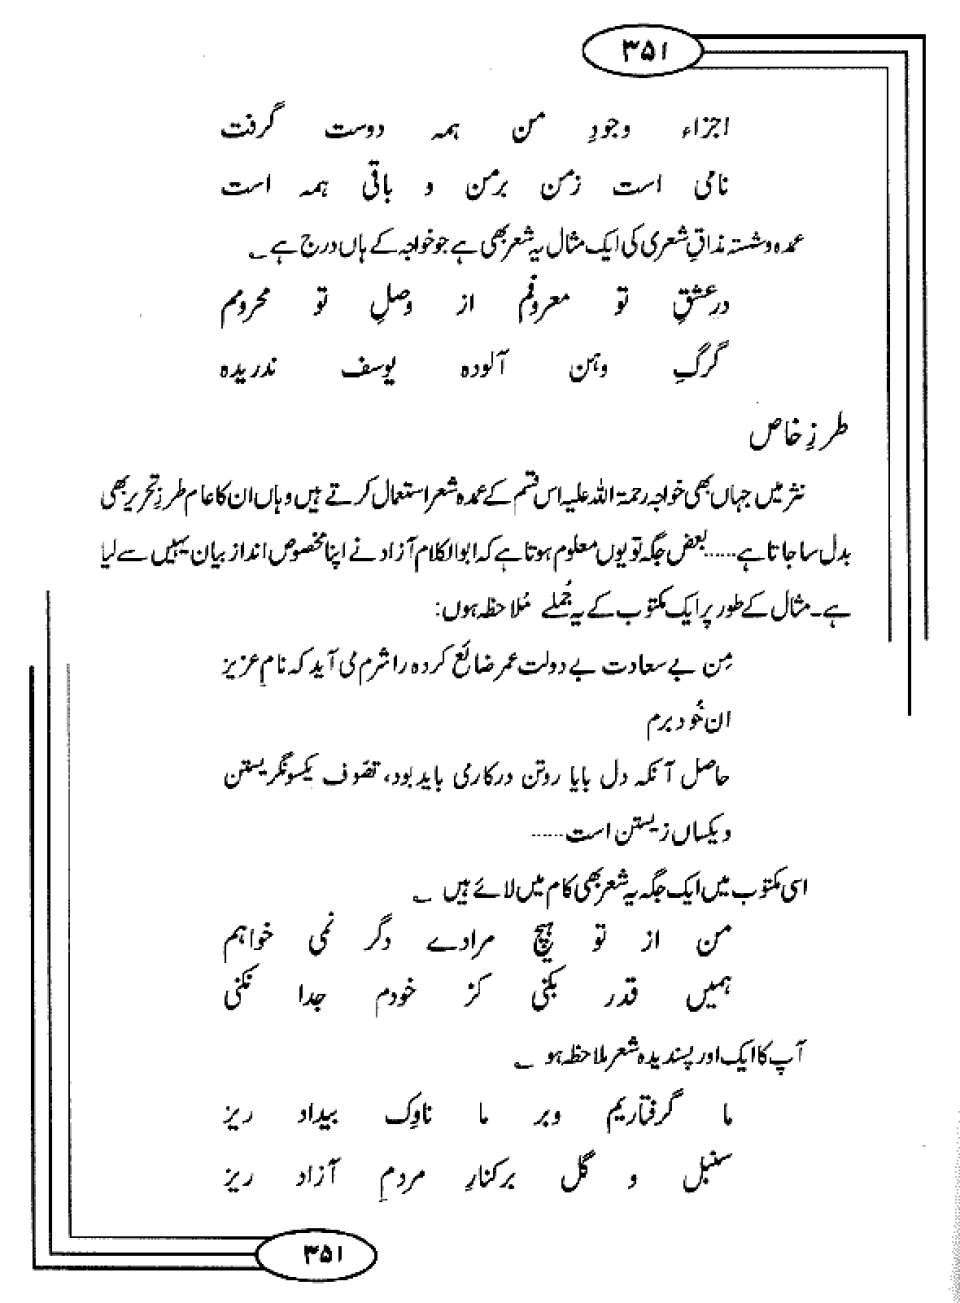 ۳۵۱
اجزاء وجودِ من ہمہ دوست گرفت
نامی است زمن برمن و باقی ہمہ است
عمدہ و شستہ مذاقِ شعری کی ایک مثال یہ شعر بھی ہے جو خواجہ کے ہاں درج ہے ؎
در عشقِ تو معروفم از وصلِ تو محرومم
گرگِ وہن آلودہ یوسف ندریدہ
طرزِ خاص
نثر میں جہاں بھی خواجہ رحمۃ اللہ علیہ اس قسم کے عمدہ شعر استعمال کرتے ہیں وہاں ان کا عام طرزِ تحریر بھی
بدل سا جاتا ہے......بعض جگہ تو یوں معلوم ہوتا ہے کہ ابوالکلام آزاد نے اپنا مخصوص انداز بیان یہیں سے لیا
ہے۔ مثال کے طور پر ایک مکتوب کے یہ جُملے مُلاحظہ ہوں:
مِن بے سعادت بے دولت عمر ضائع کردہ را شرم می آید کہ نامِ عزیز
ان خُود برم
حاصل آنکہ دل بایا روتن درکار می باید بود، تصّوف یکسو نگریستن
و یکساں زیستن است......
اسی مکتوب میں ایک جگہ یہ شعر بھی کام میں لائے ہیں ؎
من از تو ہیچ مرادے دگر نمی خواہم
ہمیں قدر بکنی کز خودم جدا نکنی
آپ کا ایک اور پسندیدہ شعر ملاحظہ ہو ؎
ما گرفتاریم وبر ما ناوِک بیداد ریز
سنبل و گل برکنارِ مردمِ آزاد ریز
۳۵۱